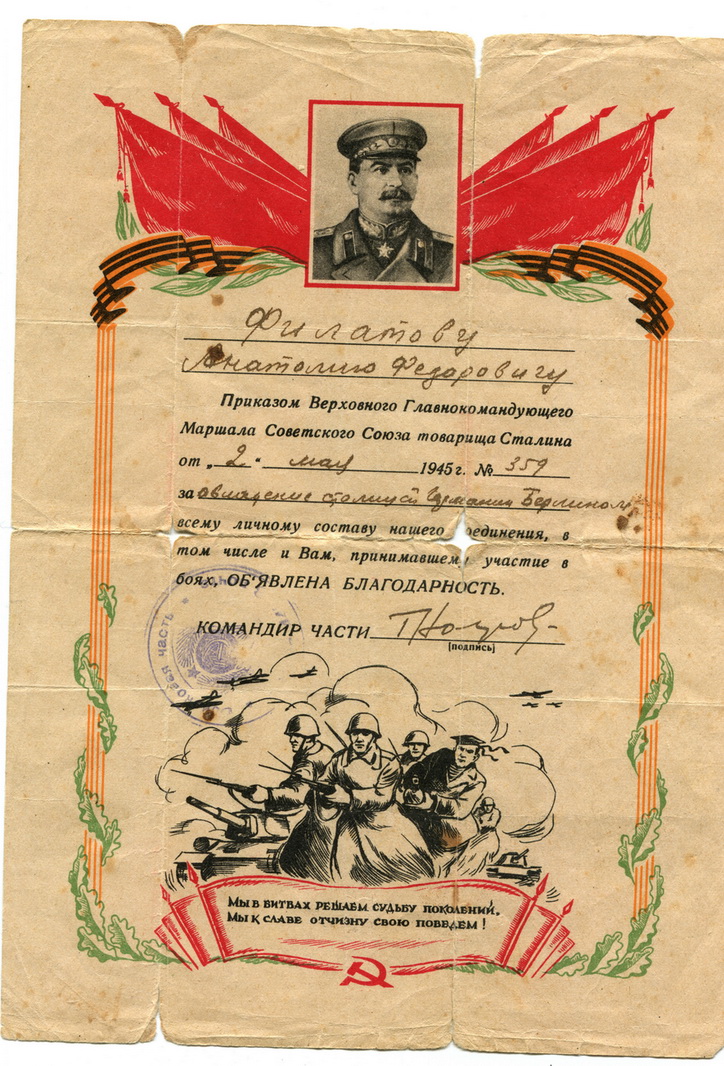 Филатову
Анатолию Федоровичу
Приказом Верховного Главнокомандующего
Маршала Советского Союза товарища Сталина
от „2“ мая 1945 г. № 359
за овладение столицей Германии Берлином
всему личному составу нашего оединения, в
том числе и Вам, принимавшему участие в
боях, ОБ'ЯВЛЕНА БЛАГОДАРНОСТЬ.
КОМАНДИР ЧАСТИ
(подпись)
часть
МЫ В БИТВАХ РЕШАЕМ СУДЬБУ ПОКОЛЕНИЙ,
МЫ К СЛАВЕ ОТЧИЗНУ СВОЮ ПОВЕДЕМ!